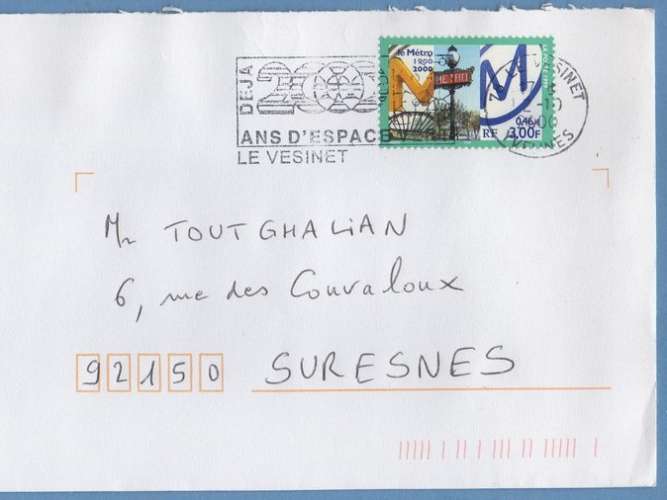 DEJA
2000
ANS D'ESPACE
LE VESINET
le Métro
1900
2000
M
METRO
M
0,46€
RF 3,00F
VESINET
YVELINES
Mr TOUTGHALIAN
6, rue des Couvaloux
92150 SURESNES